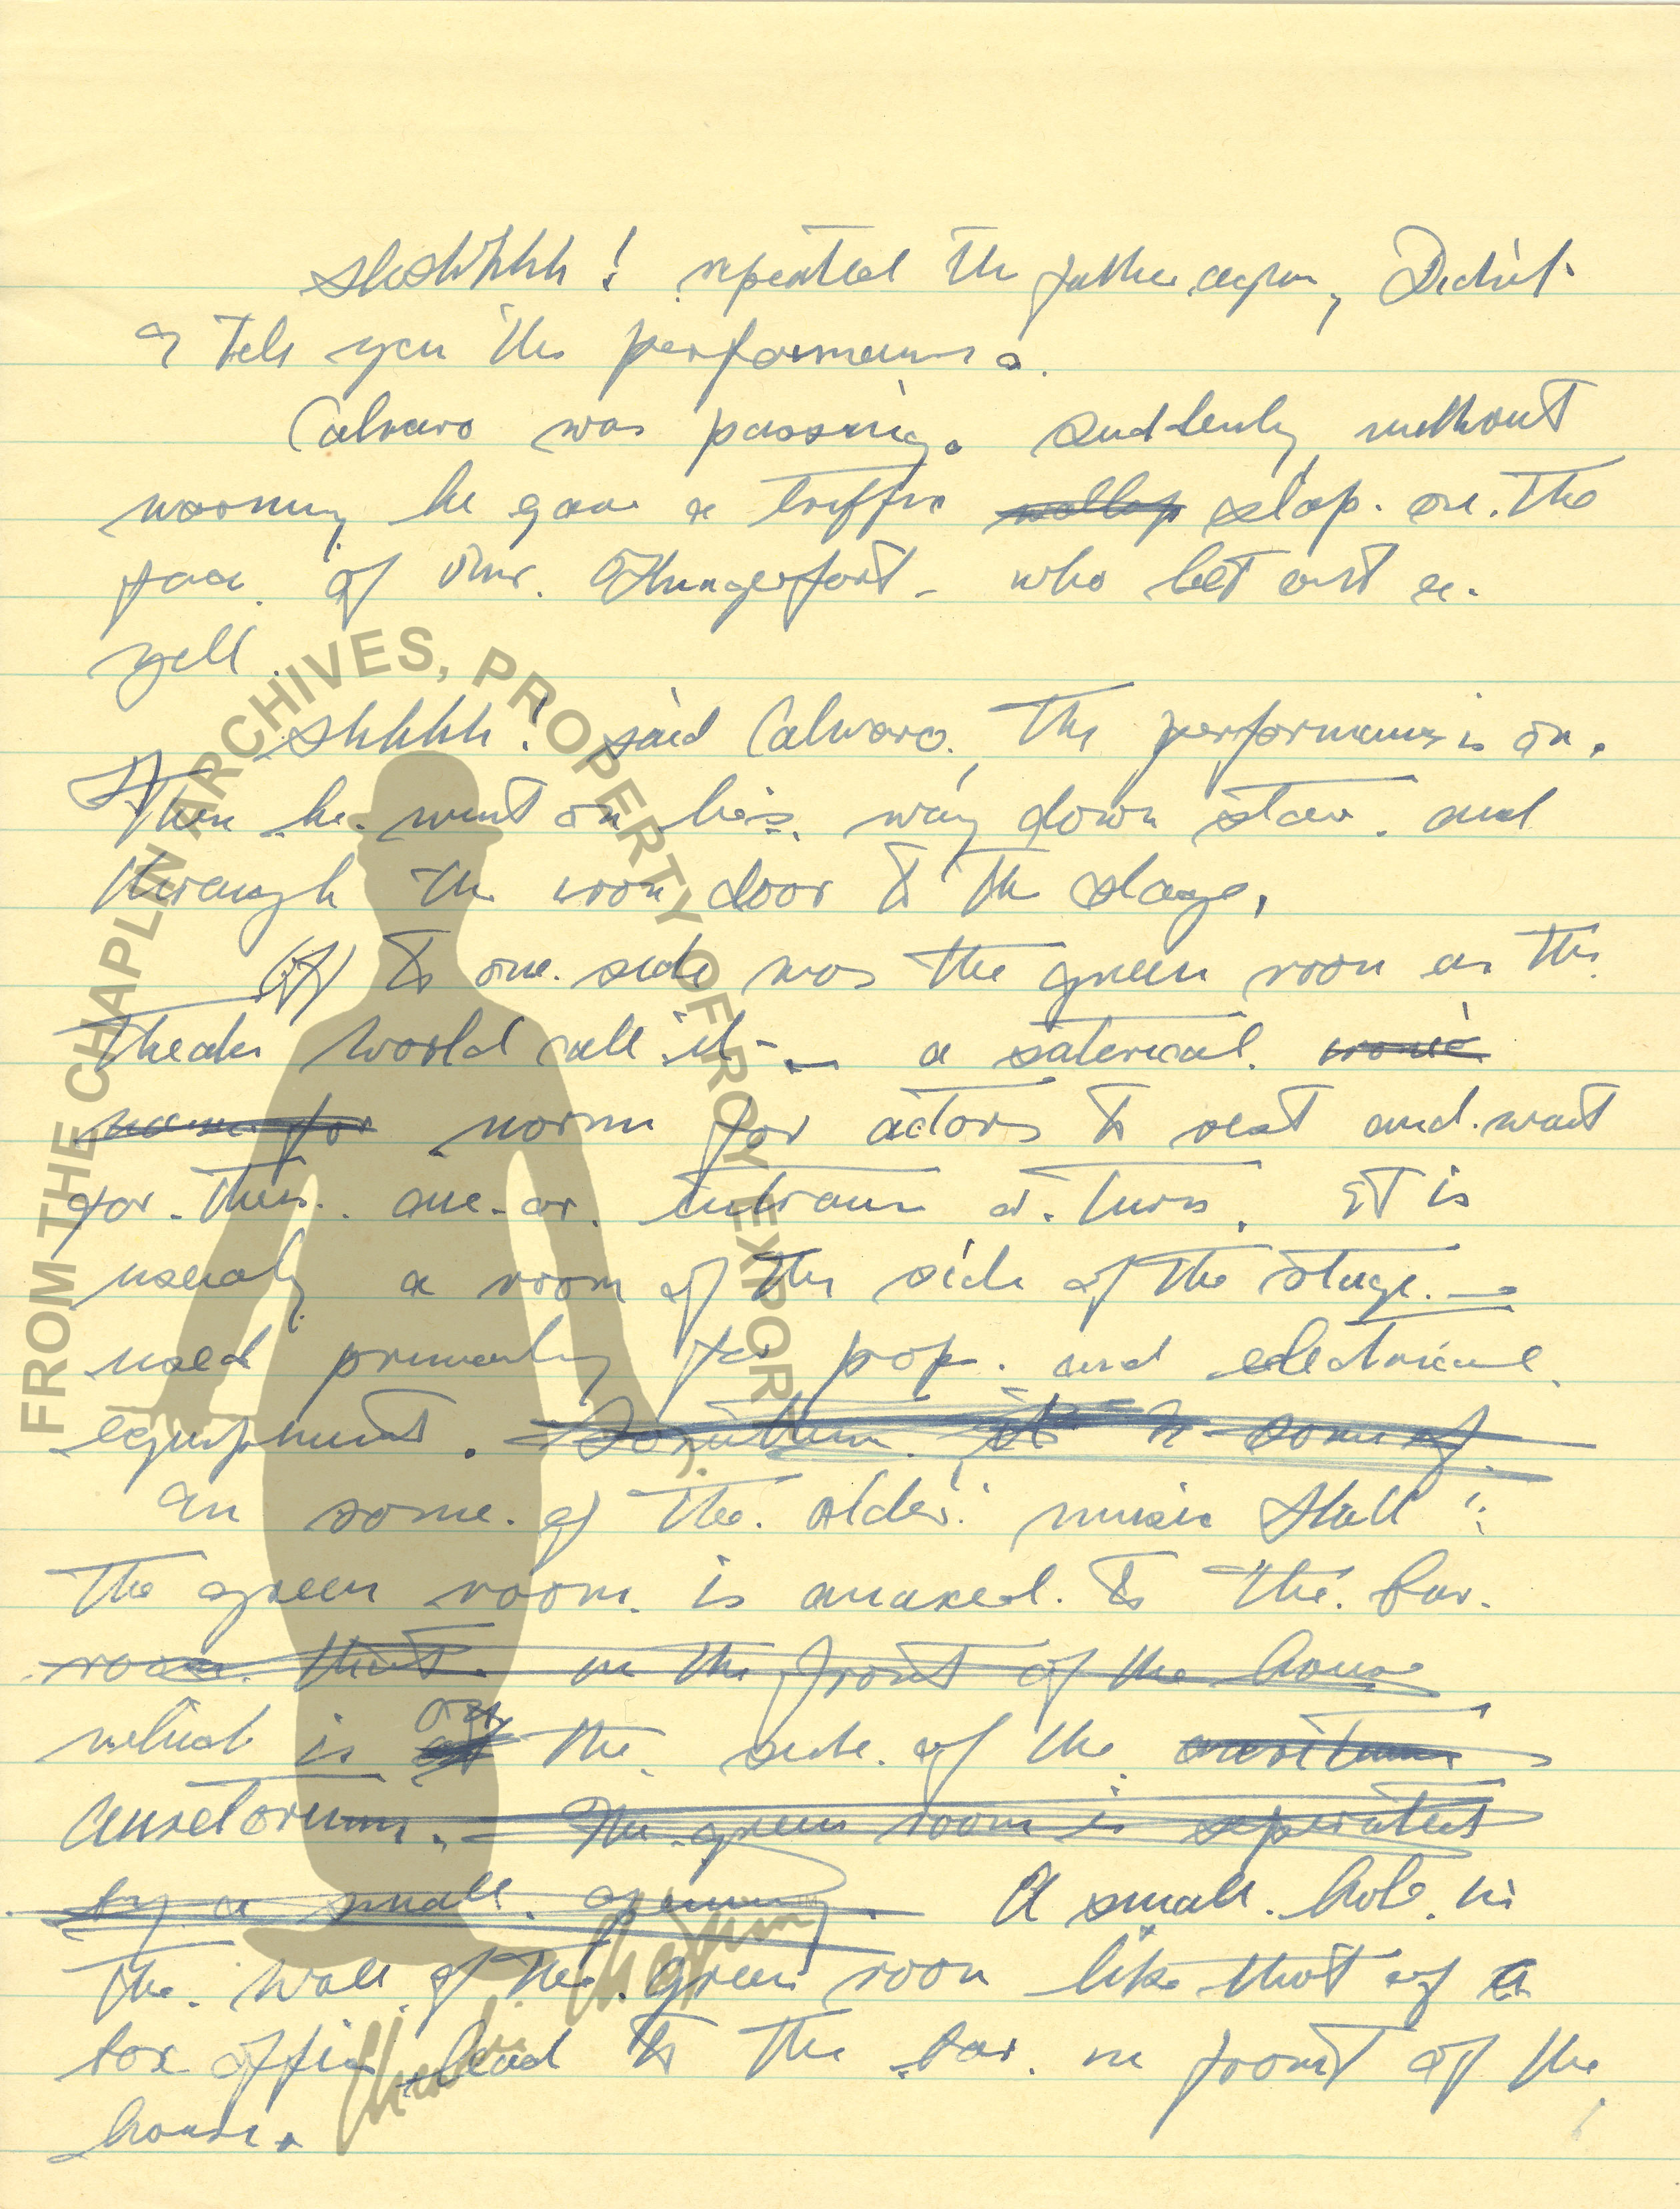 Shshhhh! repeated the father again, Didn't
I tell you the performance.
Calvaro was passing. Suddenly without
warning he gave a terrific wallop slap. on. the
face of Mr. Hungerfort - who let out a.
yell.
Shhhhh! said Calvaro. The performance is on.
Then he went on his way down stair. and
through the iron door to the stage.
Off to one side was the green room as the
Theater world call it - a saterical. ironic
name for norm for actors to rest and wait
for their. entrance or turn. It is
usualy a room of the side of the stage. —
used primarily for prop. and electrical
equipment. Sometime. it is some of
In some. of the. older music Hall
The green room. is anaxed. to the. bar.
room that in the front of the house
which is off at the. side. of the
auditorium. — The green room is seperated
by a small. opening. A small. hole. in
the. wall of the. green room like that of a
box office lead to the bar. in front of the
house.
FROM THE CHAPLIN ARCHIVES, PROPERTY OF ROY EXPORT
Charlie Chaplin